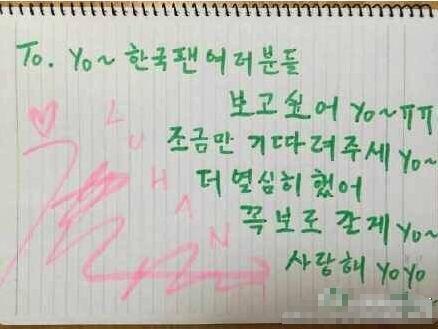 To. yo~ 한국팬여러분들
보고싶어 yo~ㅠㅠ
조금만 기따려주세 yo~
더 열심히 했어
꼭 보로 갈게 yo~
사랑해 yoyo
LUHAN